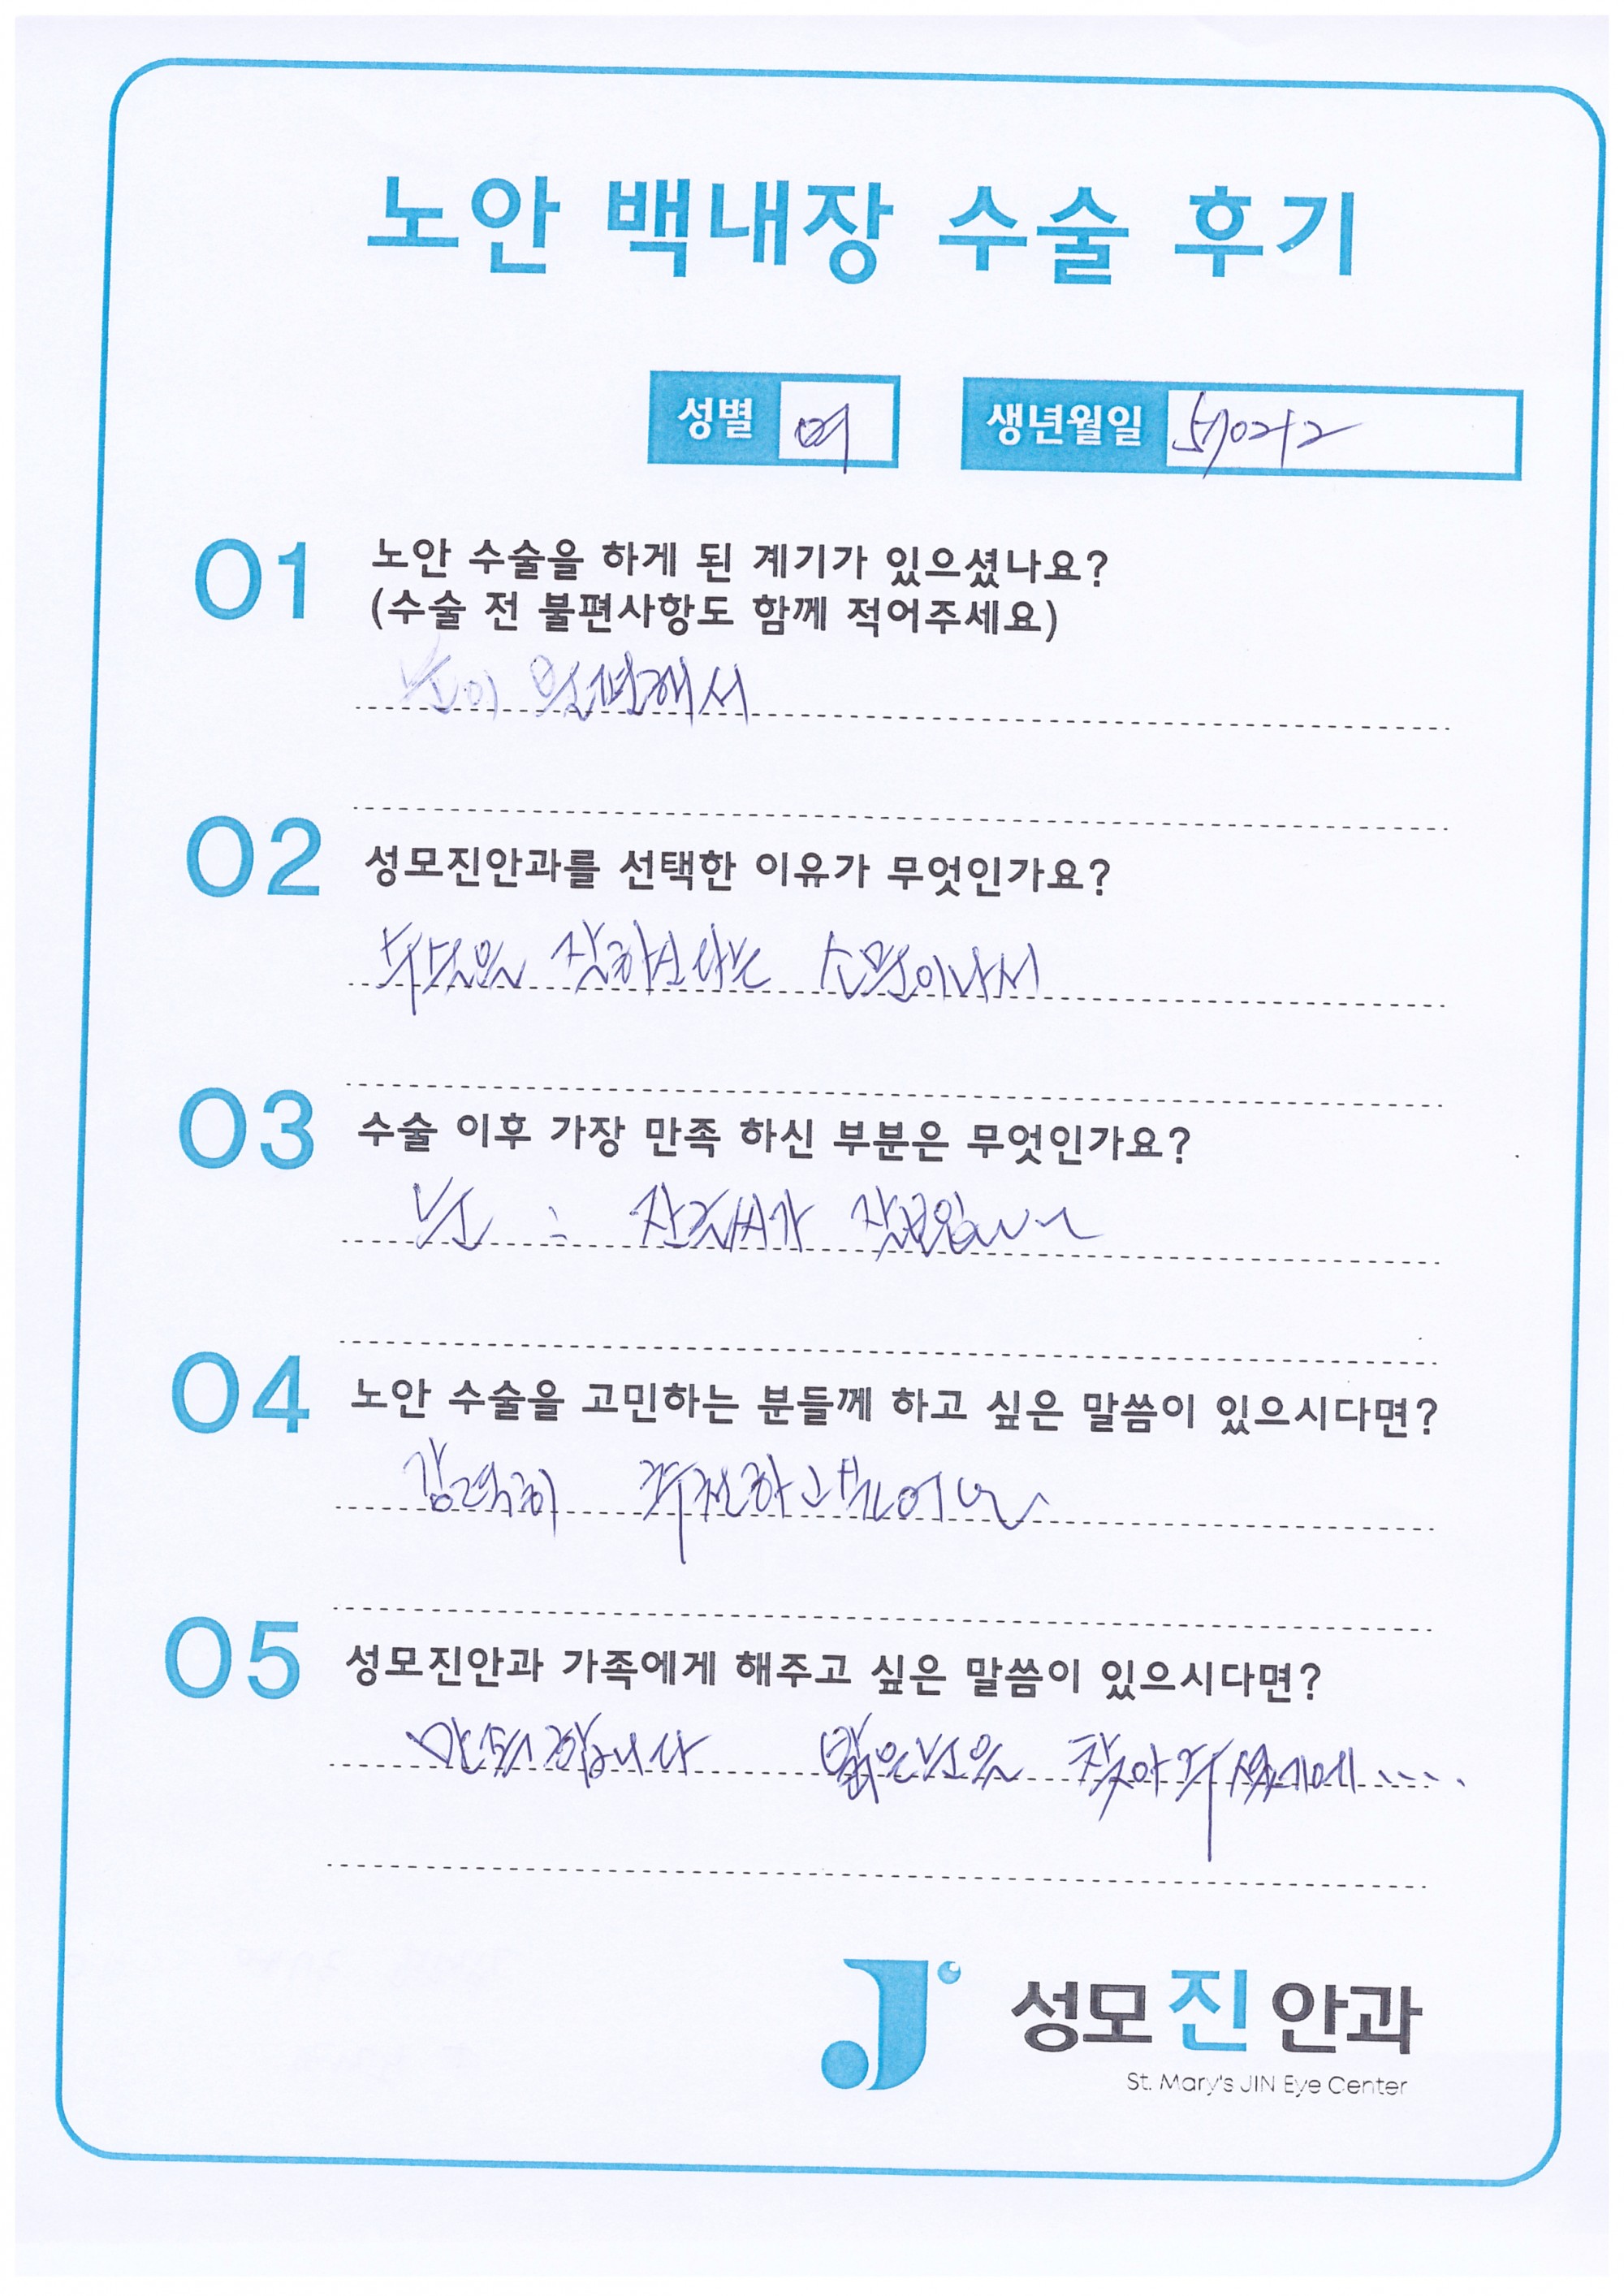 노안 백내장 수술 후기
성별 여 생년월일
01 노안 수술을 하게 된 계기가 있으셨나요?
(수술 전 불편사항도 함께 적어주세요)
눈이 불편해서
02 성모진안과를 선택한 이유가 무엇인가요?
수술을 잘하신다는 소문이나서
03 수술 이후 가장 만족 하신 부분은 무엇인가요?
눈 : 잔글씨가 잘보임
04 노안 수술을 고민하는 분들께 하고 싶은 말씀이 있으시다면?
강력히 추천하고싶어
05 성모진안과 가족에게 해주고 싶은 말씀이 있으시다면?
만족합니다 밝은눈을 찾아주셨기에....
성모진안과
St. Mary's JIN Eye Center